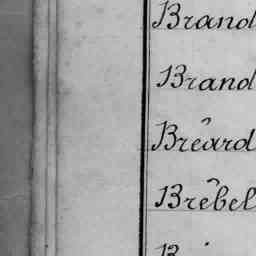 Brand
Brand
Bréard
Brébel